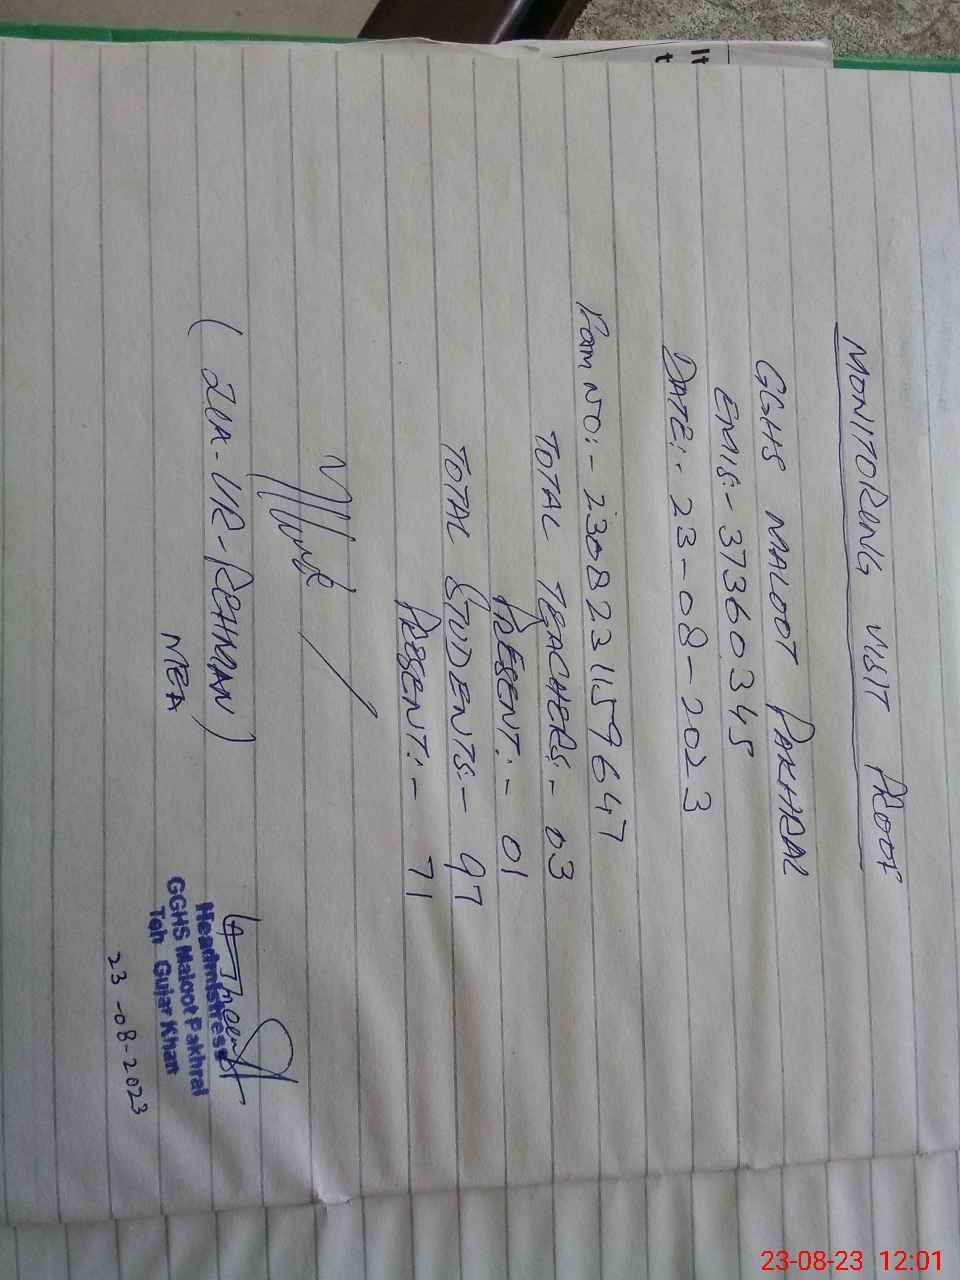 MONITORING VISIT PROOF
GGHS MALOOT PAKHRAL
EMIS:- 37360345
DATE:- 23-08-2023
Pam NO:- 2308231159647
TOTAL TEACHERS:- 03
PRESENT:- 01
TOTAL STUDENTS:- 97
PRESENT:- 71
(ZIA-UR-REHMAN)
MEA
Headmistress
GGHS Maloot Pakhral
Teh Gujar Khan
23-08-2023
It
t
23-08-23 12:01